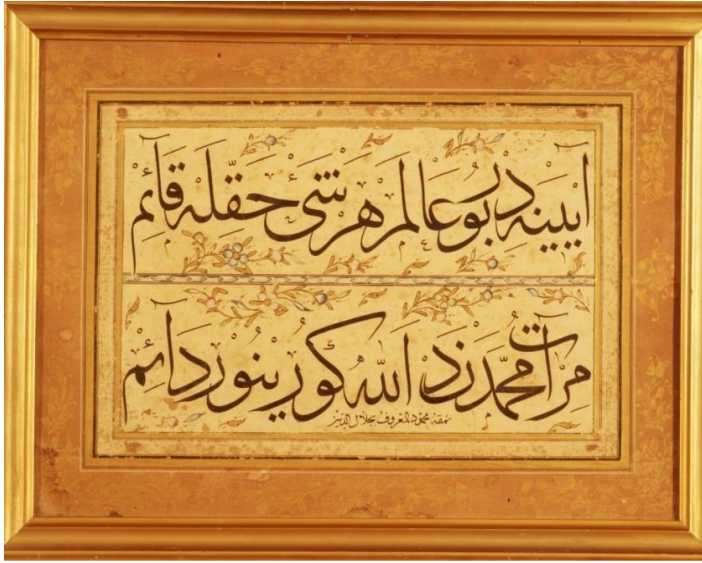 آيينه در بو عالم هر شئ حقله قآئم
مرآت محمددن الله كورينور دآئم
نمقه محمود المعروف بجلال الدين